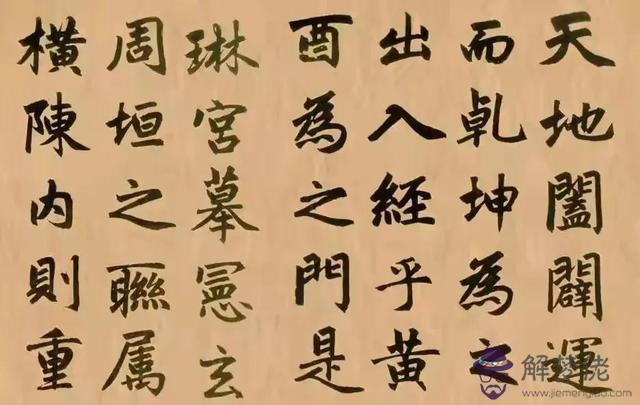 天地闔闢運
而乾坤為之
出入經乎黃
酉為之門是
琳宮摹憲玄
周垣之聯属
橫陳內則重
解梦佬
www.jiemenglao.com